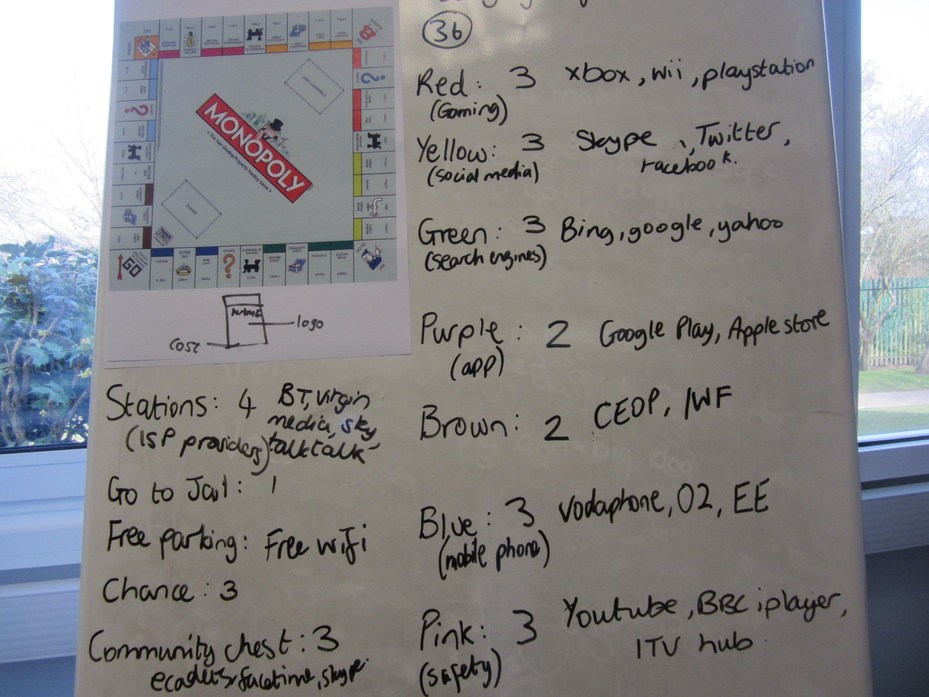 36
MONOPOLY
GO
name
logo
cost
Red: 3 xbox, wii, playstation
(Gaming)
Yellow: 3 Skype, Twitter,
(social media) facebook.
Green: 3 Bing, google, yahoo
(search engines)
Purple: 2 Google Play, Apple store
(app)
Brown: 2 CEOP, IWF
Blue: 3 vodaphone, O2, EE
(mobile phone)
Pink: 3 Youtube, BBC iplayer,
(safety) ITV hub
Stations: 4 BT, virgin
media, sky
(ISP providers) talktalk
Go to Jail: 1
Free parking: Free wifi
Chance: 3
Community chest: 3
facetime, skype